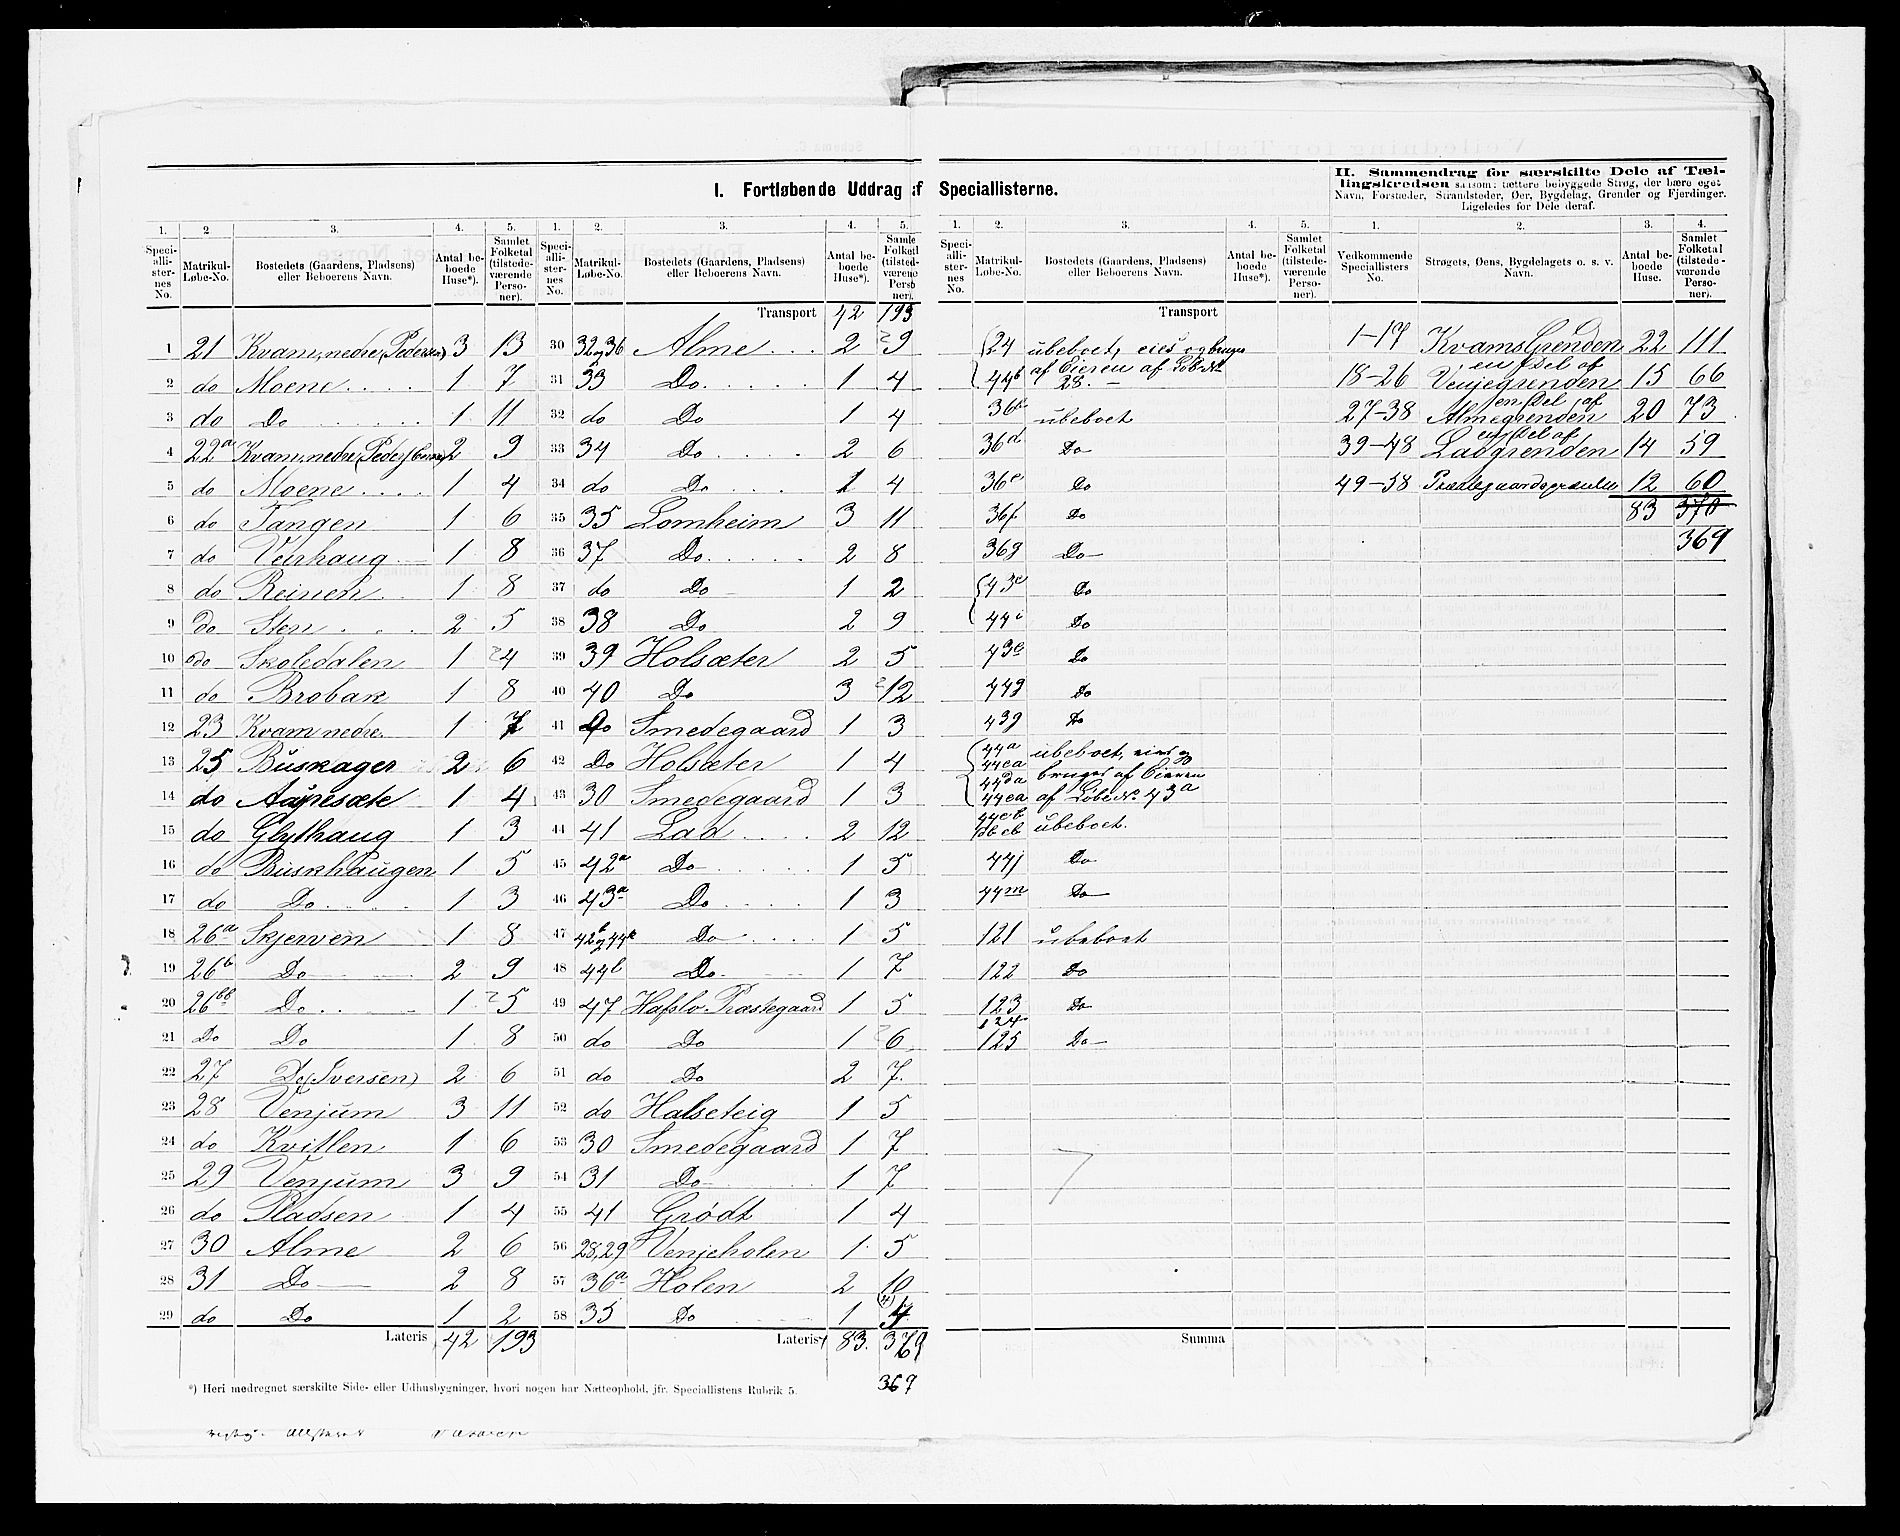 I. Fortløbende Uddrag af Speciallisterne.
II. Sammendrag for særskilte Dele af Tællingskredsen saasom: tættere bebyggede Strøg, der bære eget Navn, Forstæder, Strandsteder, Øer, Bygdelag, Grender og Fjerdinger. Ligeledes for Dele deraf.
1. 2 3. 4. 5. 1. 2. 3. 4. 5.
Speciallisternes No. Matrikul-Løbe-No. Bostedets (Gaardens, Pladsens) eller Beboerens Navn. Antal beboede Huse*). Samlet Folketal (tilstedeværende Personer).
Transport 42 193
1 21 Kvam, nedre (Pedersen) 3 13
2 do Moene 1 7
3 do Do 1 11
4 22a Kvam, nedre 2 9
5 do Moene 1 4
6 do Tangen 1 6
7 do Veirhaug 1 8
8 do Reinen 1 8
9 do Sten 2 5
10 do Skoledalen 1 4
11 do Brobak 1 8
12 23 Kvam nedre 1 7
13 25 Buskager 2 6
14 do 1 4
15 do Glythaug 1 3
16 do Buskhaugen 1 5
17 do Do 1 3
18 26a Skjerven 1 8
19 26b Do 2 9
20 26bb Do 1 5
21 Do Do 1 8
22 27 Do (Iversen) 2 6
23 28 Venjum 3 11
24 do Kvitlen 1 6
25 29 Venjum 3 9
26 do Pladsen 1 4
27 30 Alme 2 6
28 31 Do 2 8
29 do Do 1 2
Lateris 42 193
30 32 og 36 Alme 2 9
31 33 Do 1 4
32 do Do 1 4
33 34 Do 2 6
34 do Do 1 4
35 35 Lomheim 3 11
36 37 Do 2 8
37 do Do 1 2
38 38 Do 2 9
39 39 Holsæter 2 5
40 40 Do 3 12
41 do Smedegaard 1 3
42 Do Holsæter 1 4
43 30 Smedegaard 1 3
44 41 Lad 2 12
45 42a Do 1 5
46 43a Do 1 3
47 42b og 44k Do 1 5
48 44l Do 1 7
49 47 Hafslo Præstegaard 1 5
50 do Do 1 6
51 do Do 2 7
52 do Halseteig 1 5
53 30 Smedegaard 1 7
54 31 Do 1 7
55 41 Grødt 1 4
56 28,29 Venjeholen 1 5
57 36a Holen 2 10
58 35 Do 1 4
Lateris 83. 369
369
*) Heri medregnet særskilte Side- eller Udhusbygninger, hvori nogen har Natteophold, jfr. Speciallistens Rubrik 5.
1. 2. 3. 4. 5.
Speciallisternes No. Matrikul-Løbe-No. Bostedets (Gaardens, Pladsens) eller Beboerens Navn. Antal beboede Huse*). Samlet Folketal (tilstedeværende Personer).
Transport
24 ubeboet, eies og bruges
44b af Eieren af Løbe No 28.
ubeboet
36d Do
36e Do
36f Do
36g Do
43c Do
44i Do
43e Do
44g Do
43g Do
44a 44ca ubeboet, eies og
44da 44ea bruges af Eieren
af Løbe No 43a
ubeboet.
44j Do
44m Do
121 ubeboet
122 Do
123 Do
124
125 Do
Summa
1. 2. 3. 4.
Vedkommende Speciallisters No. Strøgets, Øens, Bygdelagets o. s. v. Navn. Antal beboede Huse. Samlet Folketal (tilstedeværende Personer).
1-17 KvamsGrenden 22 111
18-26 en Del af Venjegrenden 15 66
27-38 en Del af Almegrenden 20 73
39-48 en Del af Ladgrenden 14 59
49-58 12 60
83 370
369